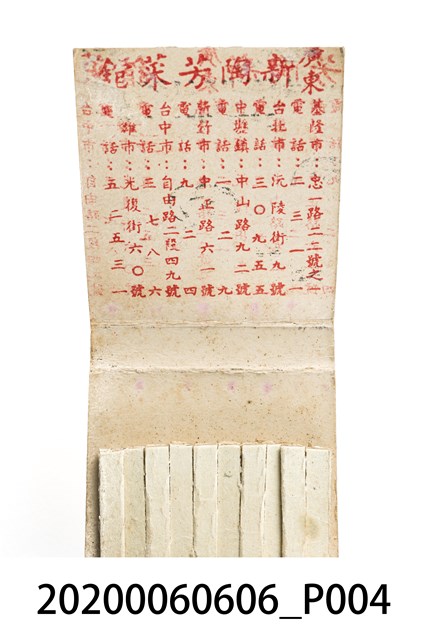 廣東
新陶芳菜館
基隆市：忠一路二二號之一
電話：二三一一
台北市：沅陵街九號
電話：三〇九五五
中壢鎮：中山路九二號
電話：二九
新竹市：中正路六一號
電話：九二四
台中市：自由路二段四九號
電話：三七八六
雄市：光復街六〇號
電話：五二五三一
20200060606_P004